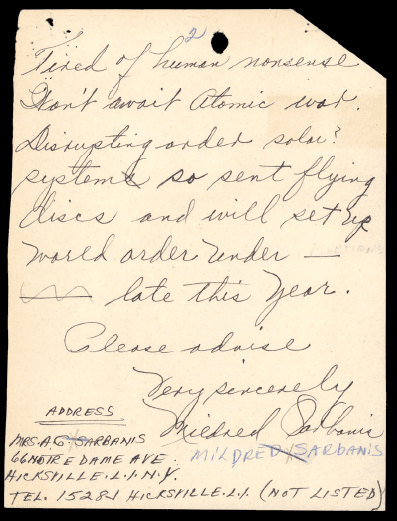 2
Tired of human nonsense
Won't await Atomic war.
Disrupting order solar?
systems so sent flying
discs and will set up
World order under —
— late this Year.
Please advise
Very sincerely
Mildred Sarbanis
MILDRED SARBANIS
ADDRESS
MRS. A.G. SARBANIS
66 NOTRE DAME AVE.
HICKSVILLE. L.I. N.Y.
TEL. 15281 HICKSVILLE. L.I. (NOT LISTED)